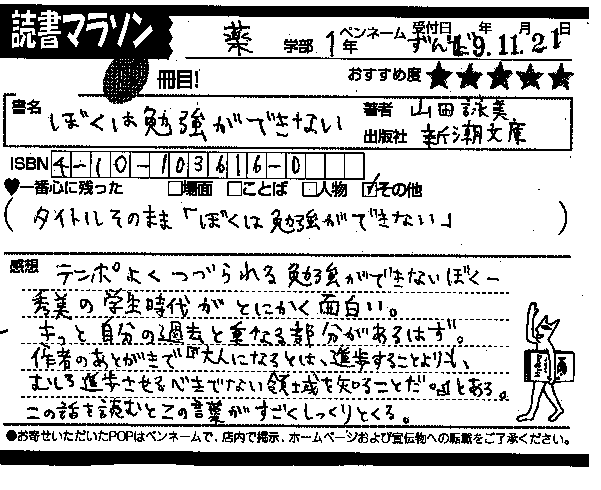 読書マラソン
薬 学部 1年 ペンネーム ずんだ 受付日 年 月 日 9.11.21
冊目! おすすめ度 ★★★★★
書名 ぼくは勉強ができない 著者 山田詠美
出版社 新潮文庫
ISBN 4-10-103616-0
♥一番心に残った □場面 □ことば □人物 ☑その他
(タイトルそのまま「ぼくは勉強ができない」)
感想 テンポよくつづられる勉強ができないぼくー
秀美の学生時代がとにかく面白い。
きっと自分の過去と重なる部分があるはず。
作者のあとがきで『大人になるとは、進歩することよりも、
むしろ進歩させるべきでない領域を知ることだ。』とある。
この話を読むとこの言葉がすごくしっくりとくる。
●お寄せいただいたPOPはペンネームで、店内で掲示、ホームページおよび宣伝物への転載をご了承ください。